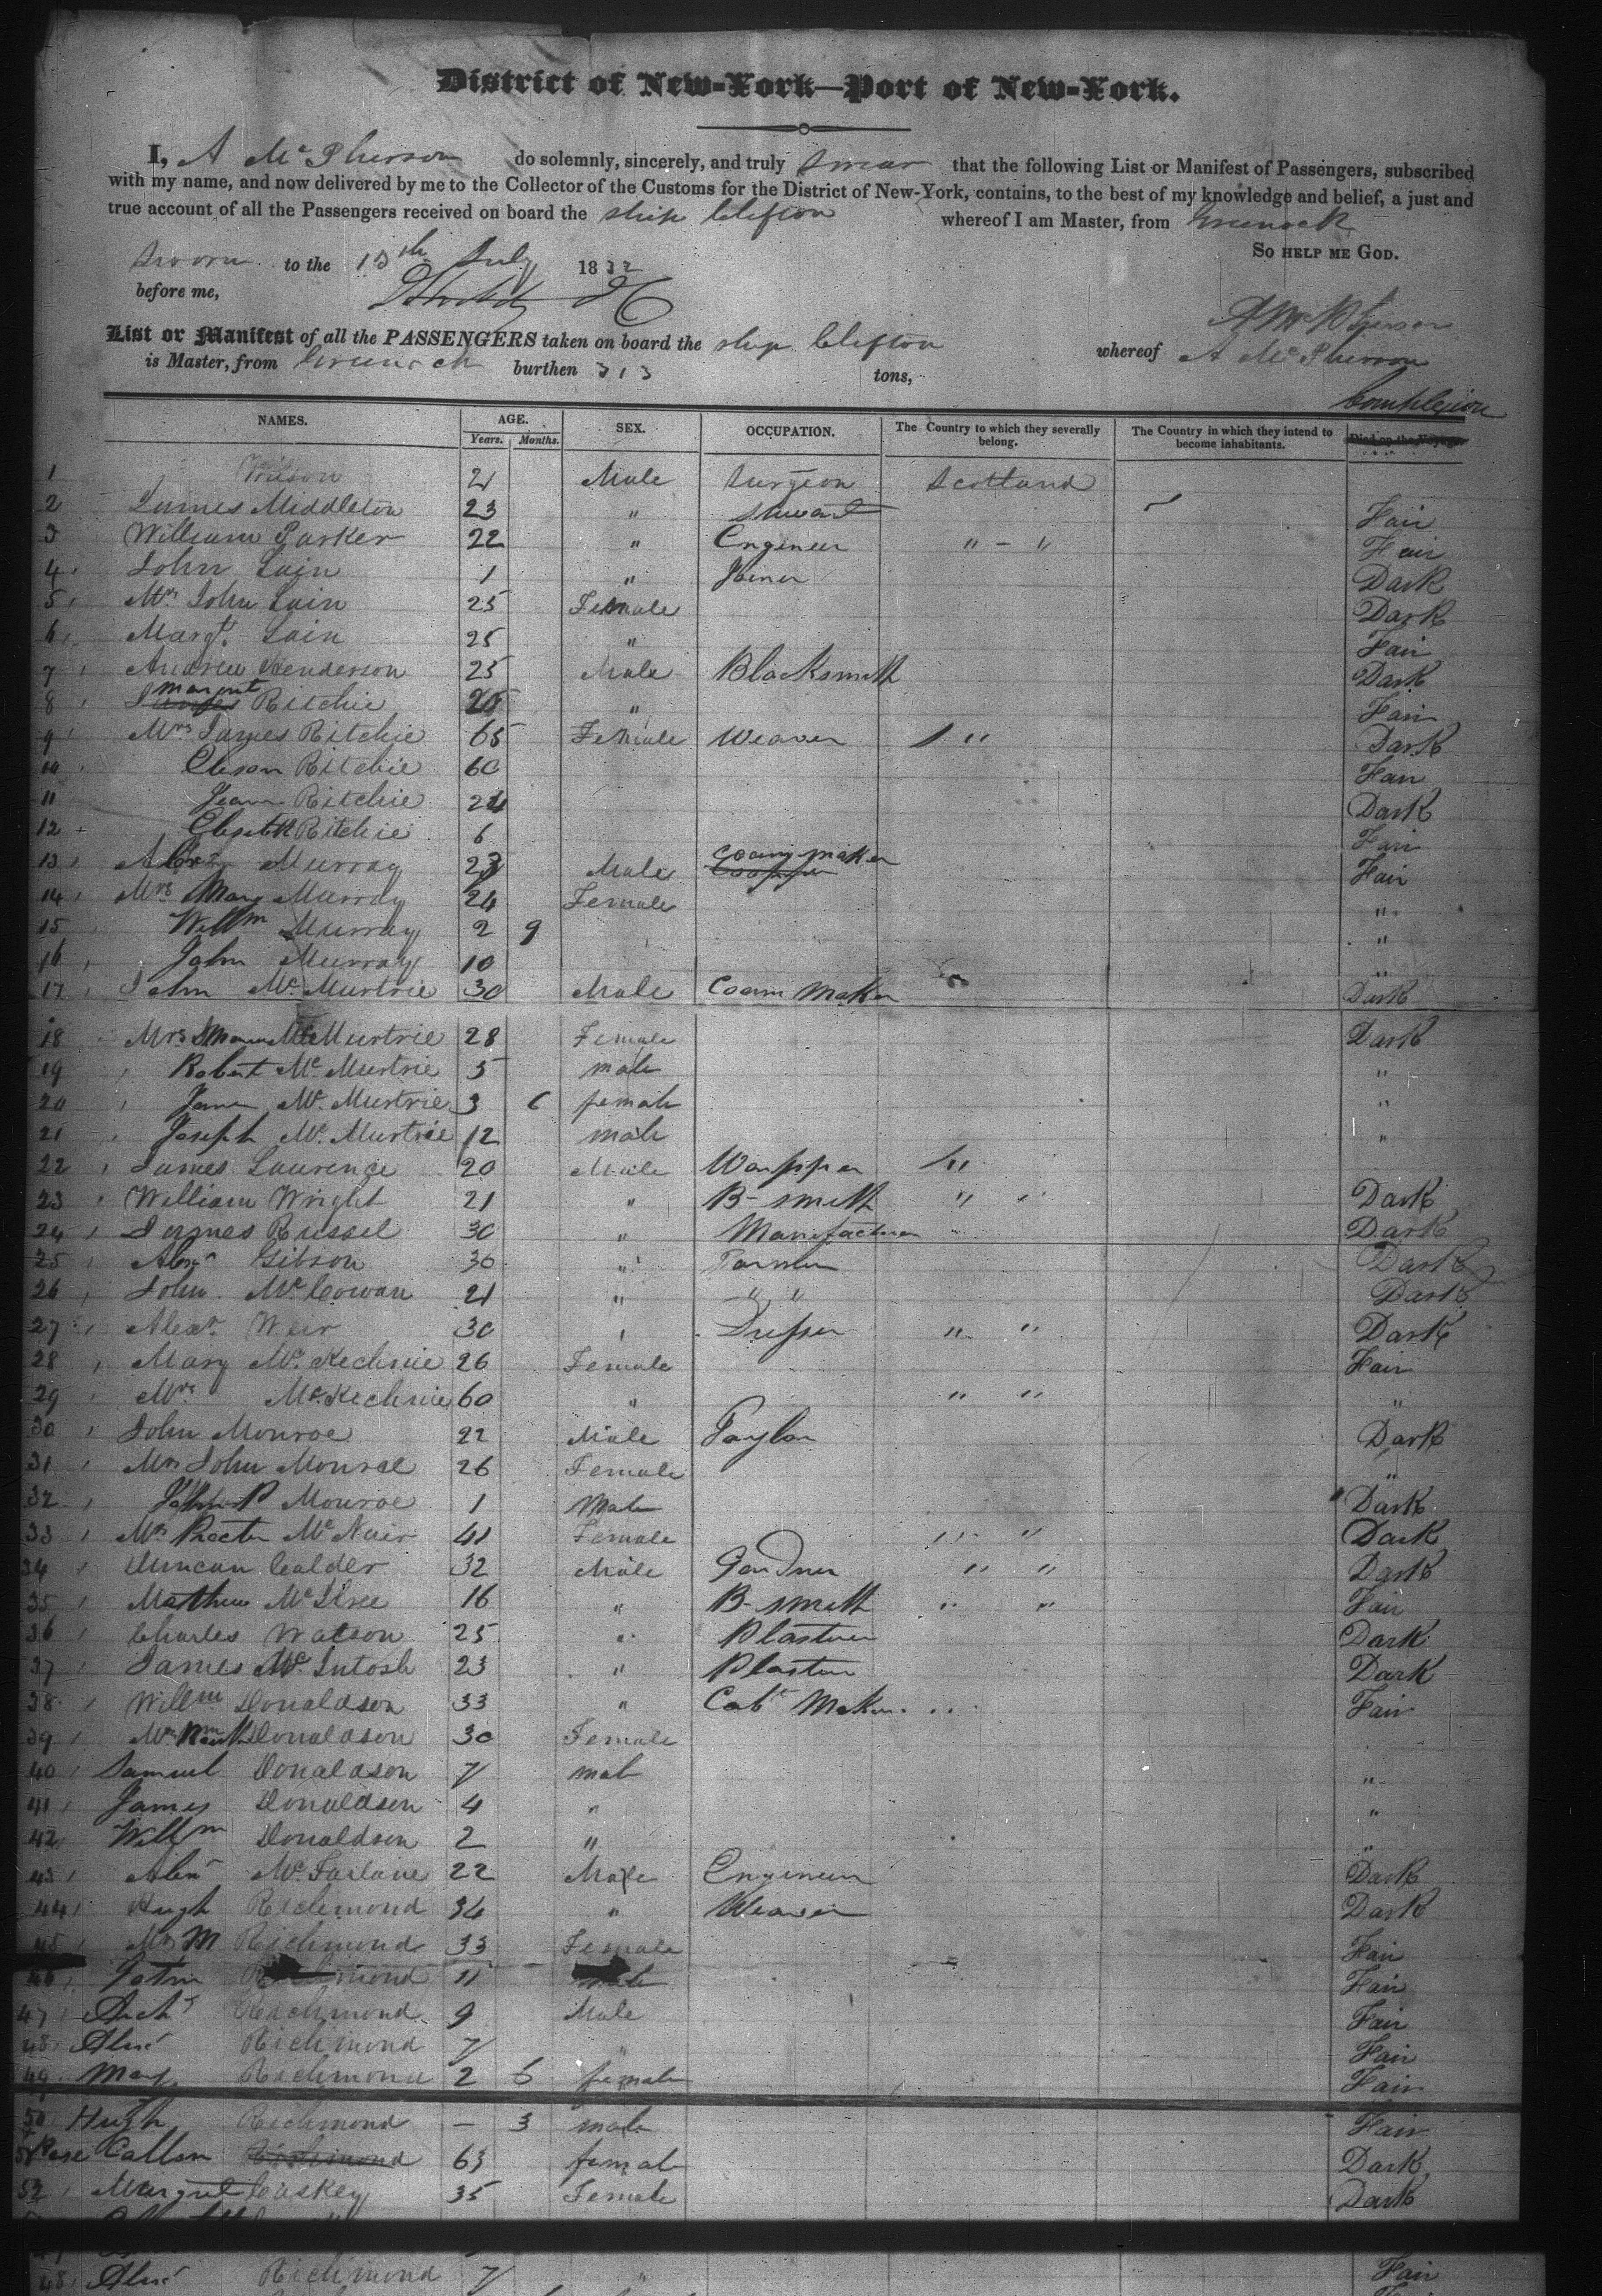 District of New-York—Port of New-York.
I, A McPherson do solemnly, sincerely, and truly swear that the following List or Manifest of Passengers, subscribed
with my name, and now delivered by me to the Collector of the Customs for the District of New-York, contains, to the best of my knowledge and belief, a just and
true account of all the Passengers received on board the ship Clifton whereof I am Master, from Greenock
So help me God.
Sworn to the 13th July 1832
before me,
A McPherson
List or Manifest of all the PASSENGERS taken on board the ship Clifton whereof A McPherson
is Master, from Greenock burthen 313 tons,
Complexion
NAMES. AGE. SEX. OCCUPATION. The Country to which they severally belong. The Country in which they intend to become inhabitants. Died on the Voyage.
Years. Months.
1 Wilson 21 Male Surgeon Scotland
2 James Middleton 23 " Stuart Fair
3 William Parker 22 " Engineer " - " Fair
4 John Lain 1 " Joiner Dark
5 Mrs John Lain 25 Female Dark
6 Margt. Lain 25 " Fair
7 Andrew Henderson 25 Male Blacksmith Dark
8 Margret Ritchie " Fair
9 Mrs James Ritchie 65 Female Weaver " Dark
10 Elison Ritchie 60 Fair
11 Jean Ritchie 24 Dark
12 Elizabth Ritchie 6 Fair
13 Alexr Murray 23 Male Coam maker Fair
14 Mrs Mary Murray 24 Female "
15 Willm Murray 2 9 "
16 John Murray 10 "
17 John McMurtrie 30 Male Coam Maker Dark
18 Mrs McMurtrie 28 Female Dark
19 Robert McMurtrie 5 male "
20 Jane McMurtrie 3 6 female "
21 Joseph McMurtrie 12 male "
22 James Laurence 20 Male Warpper "
23 William Wright 21 " B-smith " " Dark
24 James Russel 30 " Manufacturer Dark
25 Alexr Gibson 30 " Farmer Dark
26 John McCowan 21 " " " Dark
27 Alexr. Weir 30 Dresser " " Dark
28 Mary McKechnie 26 Female Fair
29 Mrs McKechnie 60 " " " "
30 John Monroe 22 Male Taylor Dark
31 Mrs John Monroe 26 Female "
32 Monroe 1 Male Dark
33 Mrs Procter McNair 41 Female " " Dark
34 Duncan Calder 32 Male Gardner " " Dark
35 Mathew 16 " B-smith " " Fair
36 Charles Watson 25 " Plasterer Dark
37 James McIntosh 23 " Plaster Dark
38 Willm Donaldson 33 " Cabt Maker Fair
39 Mrs Donaldson 30 Female
40 Samuel Donaldson 7 male "
41 James Donaldson 4 " "
42 Willm Donaldson 2 " "
43 Alexr McFarlane 22 Male Engineer Dark
44 Hugh Richmond 34 " Weaver Dark
45 Mrs M Richmond 33 Female Fair
46 John Richmond 11 male Fair
47 Archd Richmond 9 Male Fair
48 Alexr Richmond 7 " Fair
49 Mary Richmond 2 6 female Fair
50 Hugh Richmond — 3 male Fair
51 Rose Callom Richmond 63 female Dark
52 Margret Caskey 35 Female Dark
48 Alexr Richmond 7 " Fair